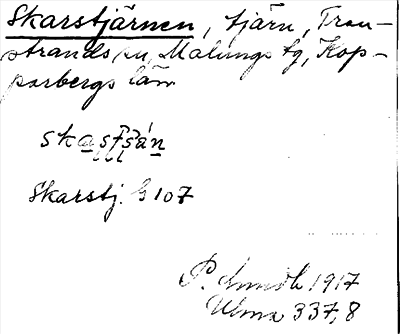 Skarstjärnen, tjärn, Tran-
strands sn, Malungs tg, Kop-
parbergs län
Skarstj. G 107
P. 1917
Ulma 337,8